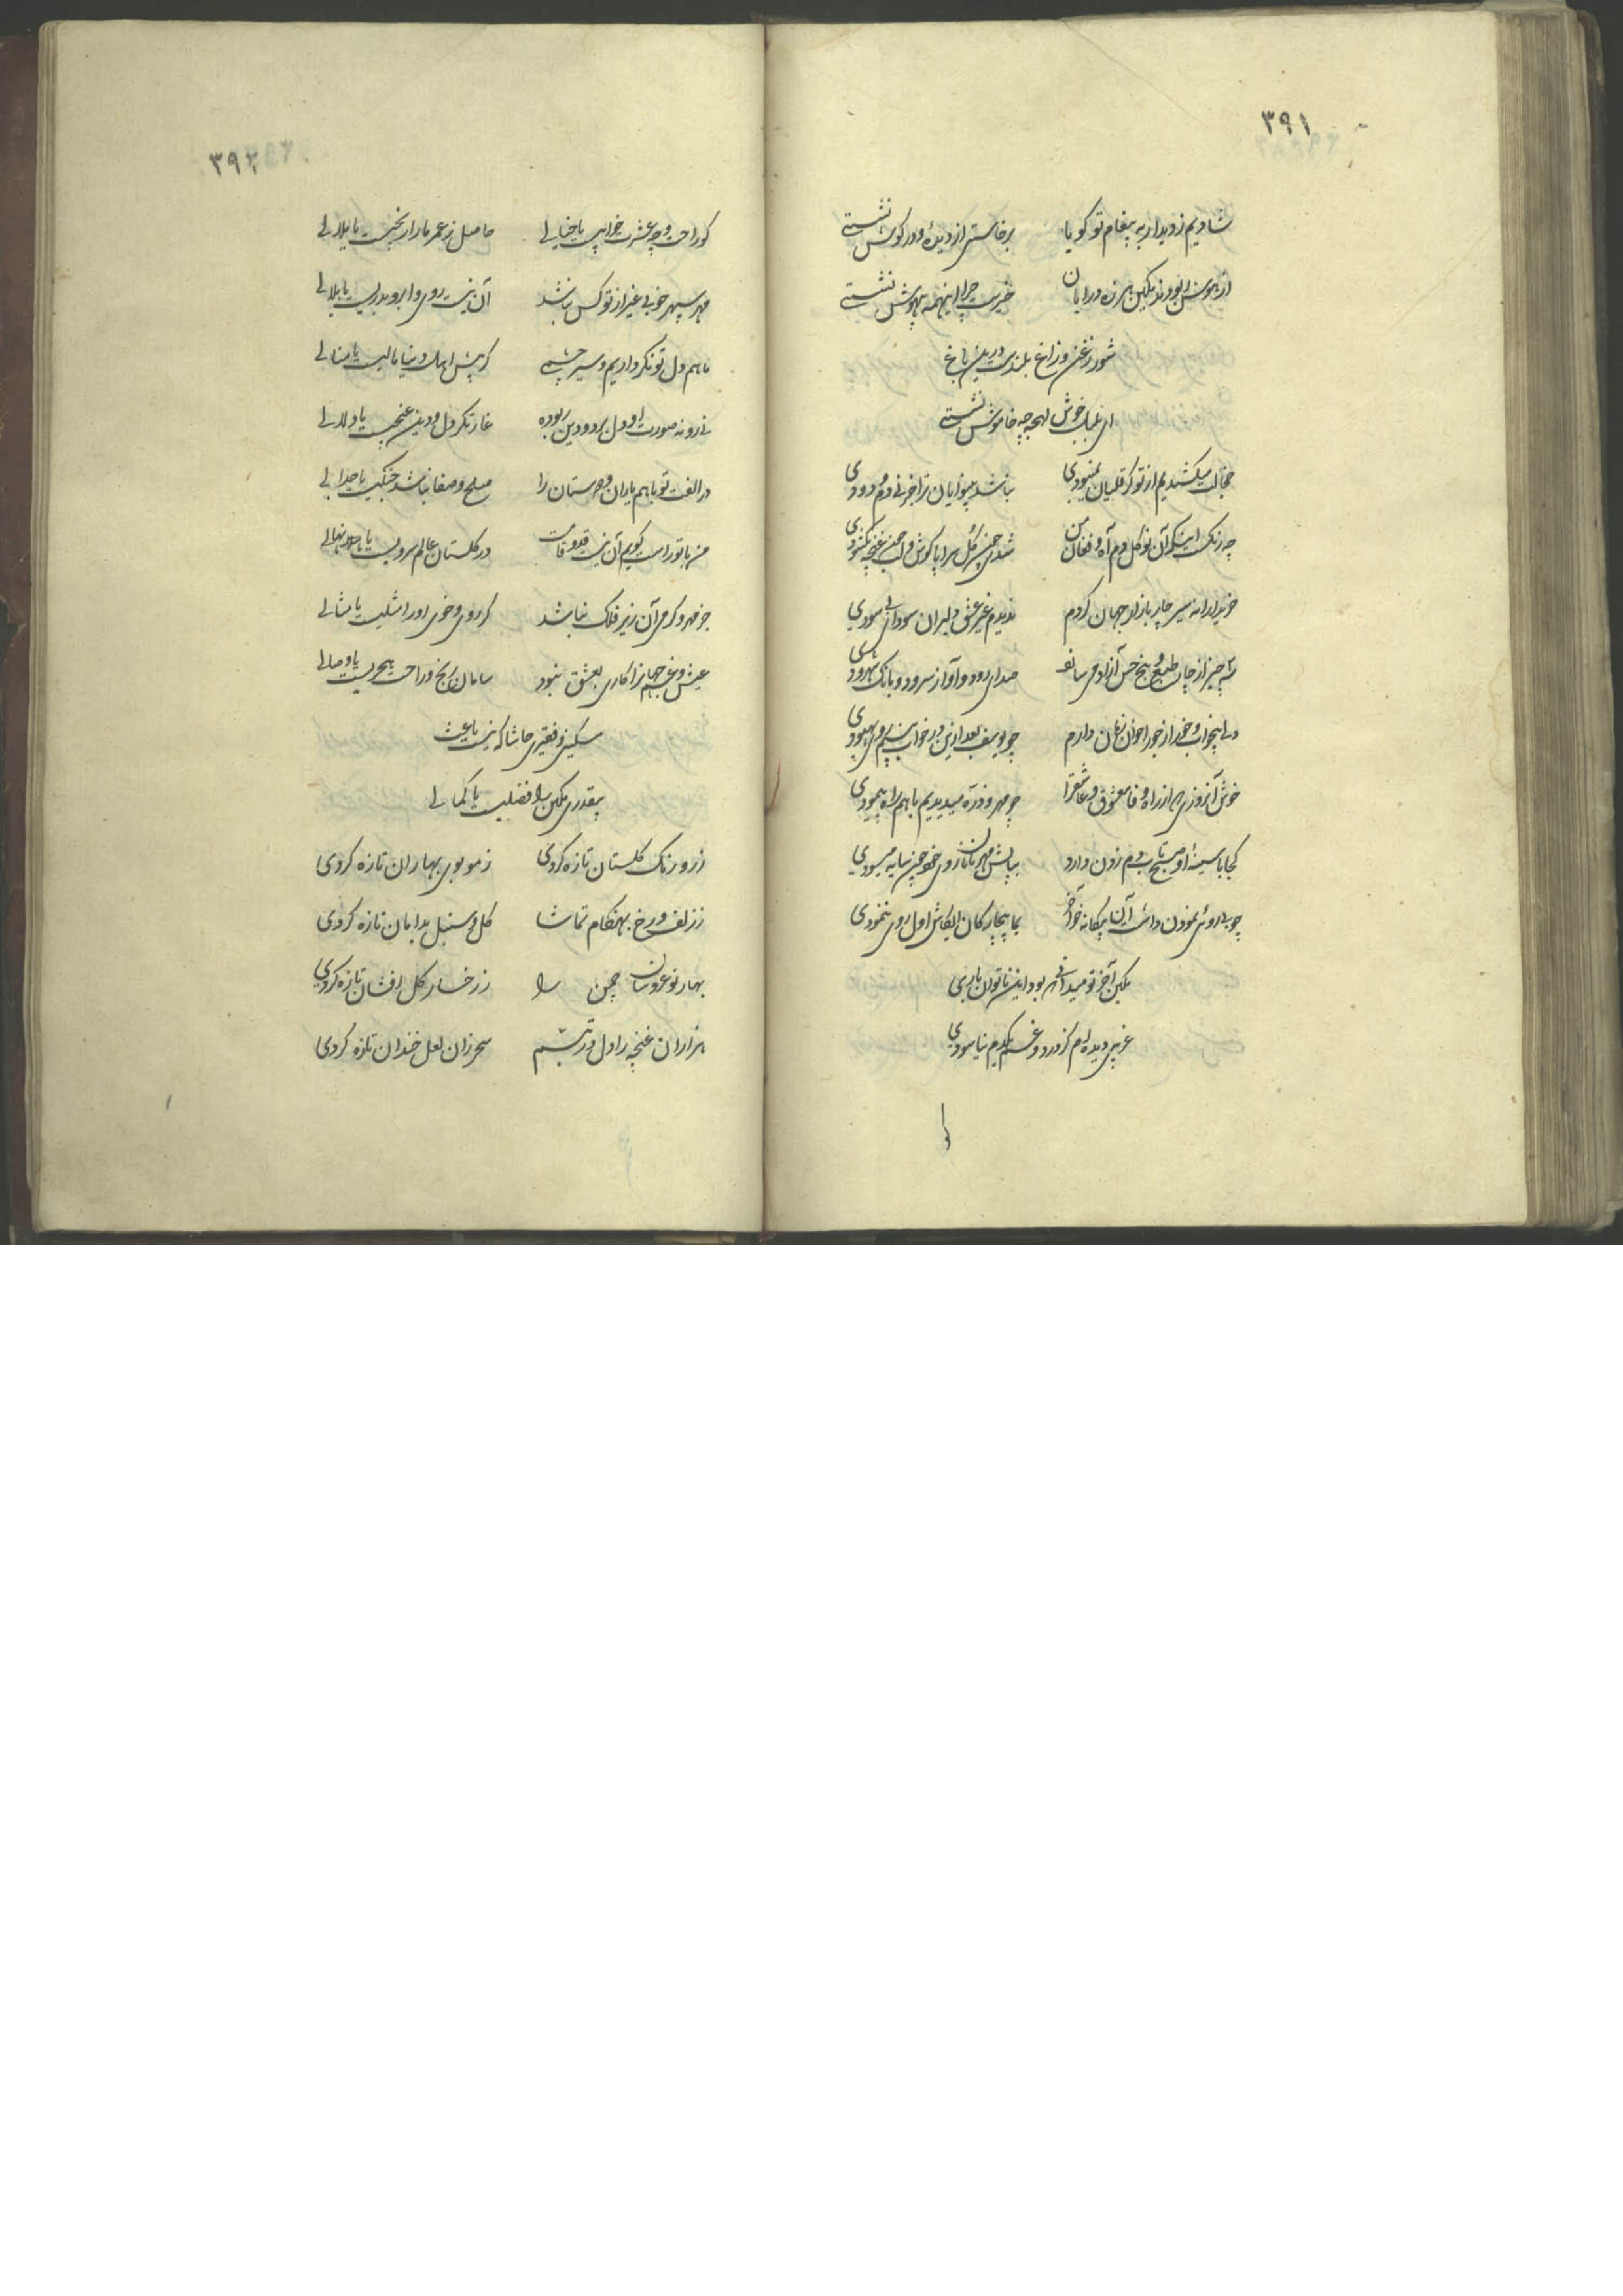 ۳۹۱
شادیم ز دیدار به پیغام تو گویا برخاستی از دیده و در گوش نشستی
از هوش ربودند هرزه درایان خیرت چرا اینهمه بیهوش نشستی
شور زغن و زاغ بلندست درین باغ
ای بلبل خوش لهجه چه خاموش نشستی
خجالت میکشیدیم از تو گر نمیبودی نباشد بینوایان را بجز نی دم دودی
چه رنگ است اینکه آن نو گل دم آه و فغان من شدی چمن گل سراپا گوش و لب غنچه نگشودی
خریدارانه سیر چار بازار جهان کردم ندیدم غیر عشق دلبران سودای سودی
سه چیز از چار طبع و پنج حس آزاد می سازد صدای رود و آواز سرود و بانک شهرودی
دلی بیخواب و خور از جور اخوان زمان دارم چو یوسف بعد ازین در خواب بینم روی بهبودی
خوش آنروزی که از راه وفا معشوق و عاشق را چو مهر و ذره میدیدیم با هم راه پیمودی
کجا با سینهٔ او صبح تاب دم زدن دارد بپایش مهر تابان روی خود چون سایه میسودی
چو بد روئی نمودن داشت آن بیگانه خو آخر بما بیچارگان ایکاش اول روی ننمودی
آخر تو میدانی چه بود این ناتوان باری
غریبی دیده‌ام کز درد و غم یکدم نیاسودی
کو
۳۹۲
کو راحت و چه عشرت خوابی یا خیالی حاصل ز عمر ما را رنجیست یا ملالی
مهر سپهر خوبی غیر از تو کس نباشد آن نیست روی و ابرو بدریست یا هلالی
ما هم دل تونگر داریم و سیر چشمی گر پیش اهل دنیا مالیست یا منالی
نی رو نه صورت او دل برد و دین ربوده غارتگر دل و دین غنجیست یا دلالی
در الفت تو با هم یاران و دوستان را صلح و صفا نباشد جنگیست یا جدالی
من با تو راست گویم آن نیست قد و قامت در گلستان عالم سرویست یا نهالی
جز مهر و گرمی آن زیر فلک نباشد گر روی و خوی او را مثلیست یا مثالی
عیش و غم جهان را کاری بعشق نبود سامان رنج و راحت هجریست یا وصالی
مسکینی و فقیری حاشا که نیست باعث
بیقدری را فضلیست یا کمالی
ز رو رنگ گلستان تازه کردی ز مو بوی بهاران تازه کردی
ز زلف و رخ بهنگام تماشا گل و سنبل بدامان تازه کردی
بهار نوعروسان چمن را ز رخسار گل افشان تازه کردی
هزاران غنچه را دل در تبسم سحر زان لعل خندان تازه کردی